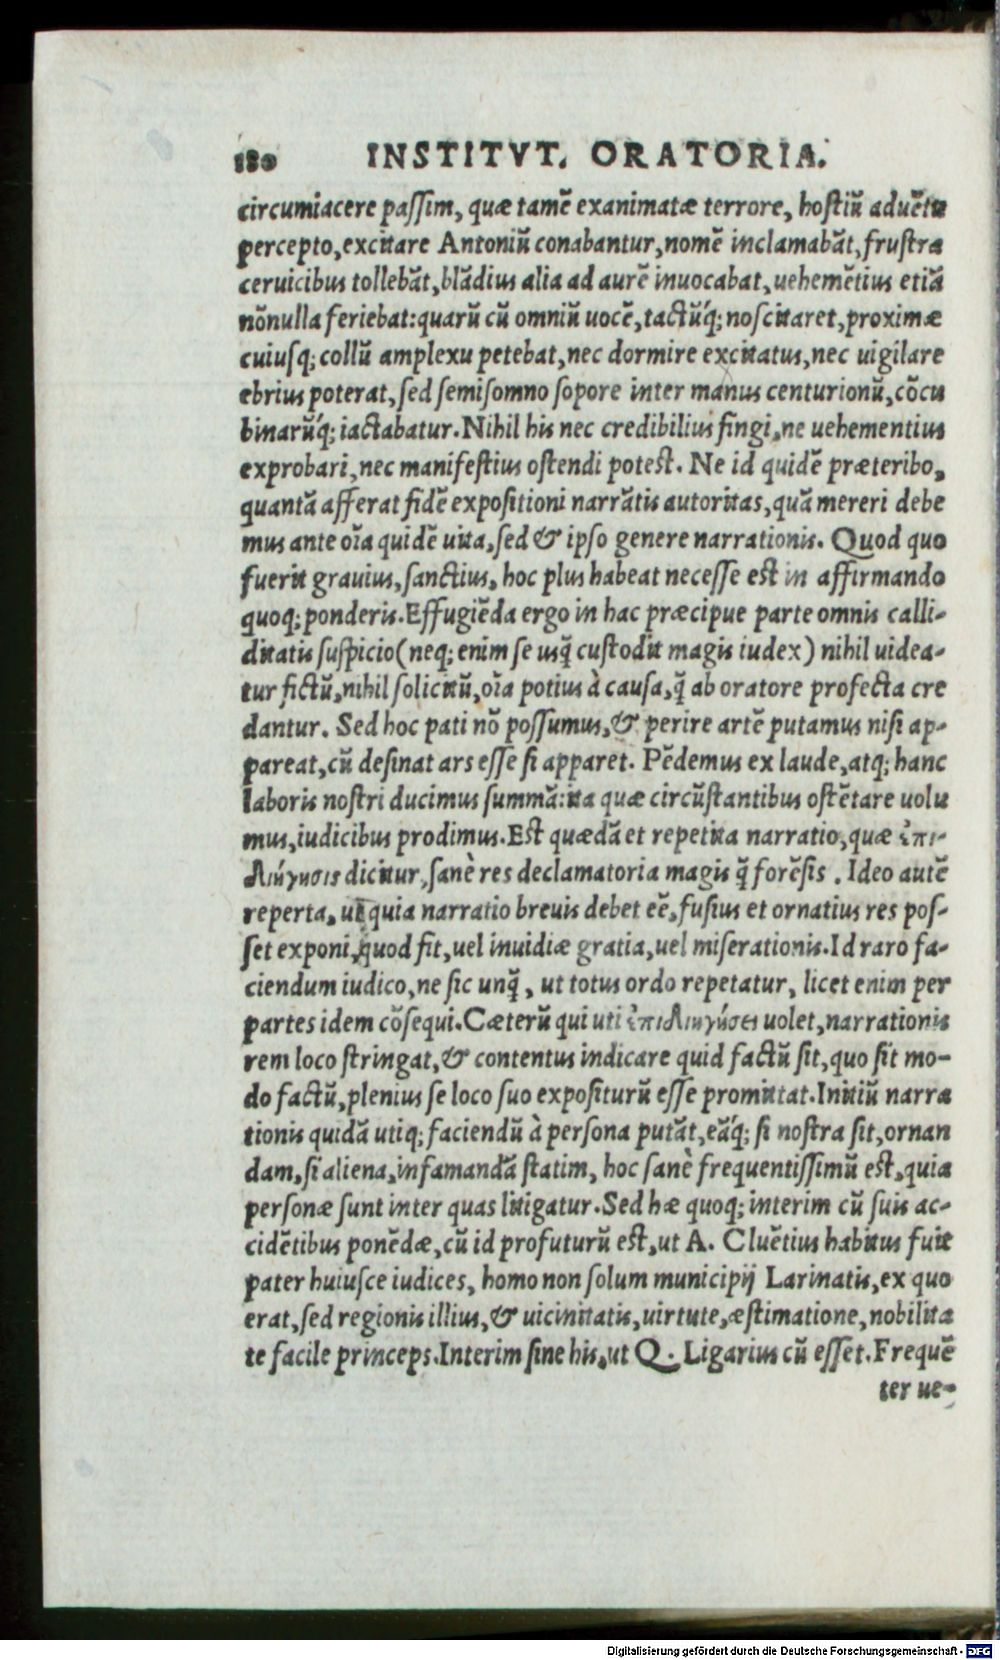 180 INSTITVT. ORATORIA.
circumiacere passim, quæ tamē exanimatæ terrore, hostiū aduētu
percepto, excitare Antoniū conabantur, nomē inclamabāt, frustra
ceruicibus tollebāt, blādius alia ad aurē inuocabat, uehemētius etiā
nōnulla feriebat: quarū cū omniū uocē, tactūq́; noscitaret, proximæ
cuiusq; collū amplexu petebat, nec dormire excitatus, nec uigilare
ebrius poterat, sed semisomno sopore inter manus centurionū, cōcu
binarūq́; iactabatur. Nihil his nec credibilius fingi, ne uehementius
exprobari, nec manifestius ostendi potest. Ne id quidē præteribo,
quantā afferat fidē expositioni narrātis autoritas, quā mereri debe
mus ante oīa quidē uita, sed & ipso genere narrationis. Quod quo
fuerit grauius, sanctius, hoc plus habeat necesse est in affirmando
quoq; ponderis. Effugiēda ergo in hac præcipue parte omnis calli-
ditatis suspicio (neq; enim se usq̄ custodit magis iudex) nihil uidea-
tur fictū, nihil solicitū, oīa potius à causa, q̄ ab oratore profecta cre
dantur. Sed hoc pati nō possumus, & perire artē putamus nisi ap-
pareat, cū desinat ars esse si apparet. Pēdemus ex laude, atq; hanc
laboris nostri ducimus summā: ita quæ circūstantibus ostētare uolu
mus, iudicibus prodimus. Est quædā et repetita narratio, quæ ἐπι-
διήγησις dicitur, sanè res declamatoria magis q̄ forēsis. Ideo autē
reperta, ut quia narratio breuis debet eē, fusius et ornatius res pos-
set exponi, quod fit, uel inuidiæ gratia, uel miserationis. Id raro fa-
ciendum iudico, ne sic unq̄, ut totus ordo repetatur, licet enim per
partes idem cōsequi. Cæterū qui uti ἐπιδιηγήσει uolet, narrationis
rem loco stringat, & contentus indicare quid factū sit, quo sit mo-
do factū, plenius se loco suo expositurū esse promittat. Initiū narra
tionis quidā utiq; faciendū à persona putāt, eāq́; si nostra sit, ornan
dam, si aliena, infamandā statim, hoc sanè frequentissimū est, quia
personæ sunt inter quas litigatur. Sed hæ quoq; interim cū suis ac-
cidētibus ponēdæ, cū id profuturū est, ut A. Cluētius habitus fuit
pater huiusce iudices, homo non solum municipij Larinatis, ex quo
erat, sed regionis illius, & uicinitatis, uirtute, æstimatione, nobilita
te facile princeps. Interim sine his, ut Q. Ligarius cū esset. Frequē
ter ue-
Digitalisierung gefördert durch die Deutsche Forschungsgemeinschaft - DFG